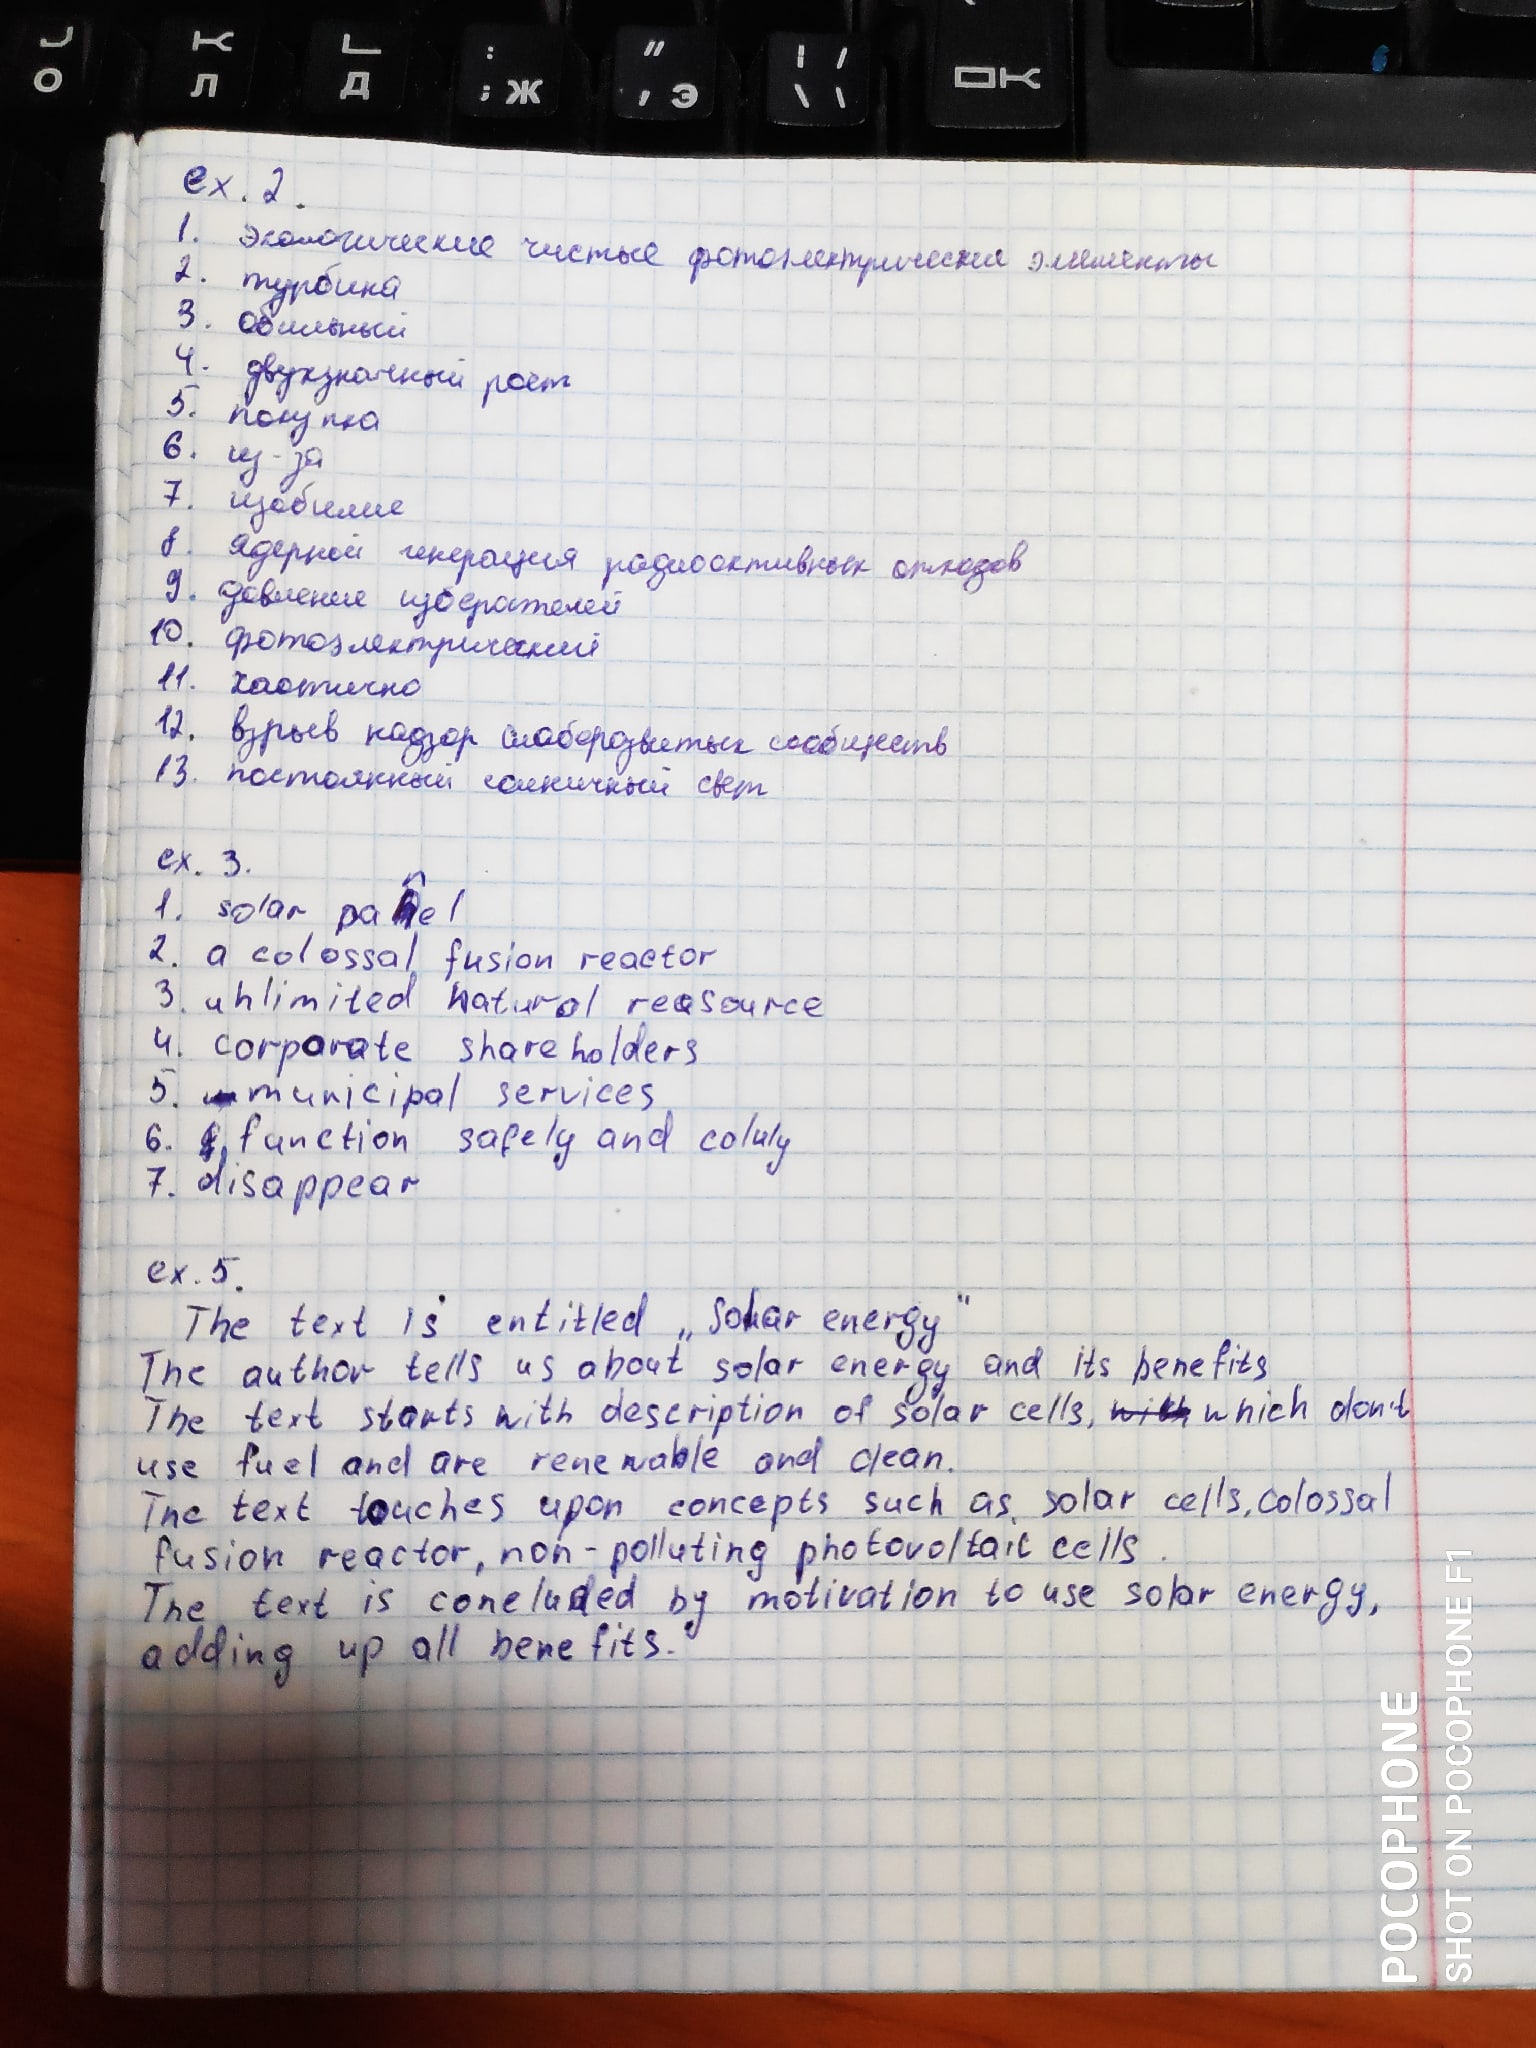 О К Л Д : ; Ж " , Э | / \ \ OK
ex. 2.
1. экологические чистые фотоэлектрические элементы
2. турбина
3. обильный
4. двухзначный рост
5. покупка
6. из-за
7. изобилие
8. ядерной генерация радиоактивных отходов
9. давление изберателей
10. фотоэлектрический
11. хаотично
12. взрыв надзор слаборозвитых сообществ
13. постоянный солничный свет
ex. 3.
1. solar panel
2. a colossal fusion reactor
3. unlimited natural reasource
4. corporate shareholders
5. municipal services
6. function safely and
7. disappear
ex. 5.
The text is entitled „Solar energy"
The author tells us about solar energy and its benefits
The text starts with description of solar cells, with which don't
use fuel and are renewable and clean.
The text touches upon concepts such as, solar cells, colossal
fusion reactor, non-polluting photovoltait cells.
The text is concluded by motivation to use solar energy,
adding up all benefits.
POCOPHONE
SHOT ON POCOPHONE F1